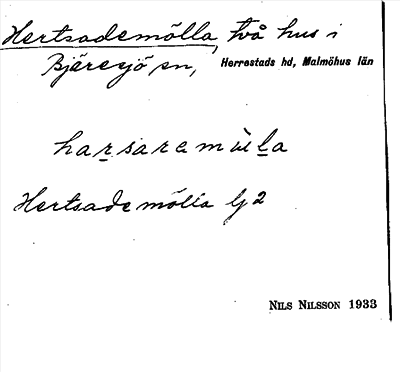 Hertsademölla, två hus i
Bjäresjö sn, Herrestads hd, Malmöhus län
harsaremùla
Hertsademölla lj 2
NILS NILSSON 1933